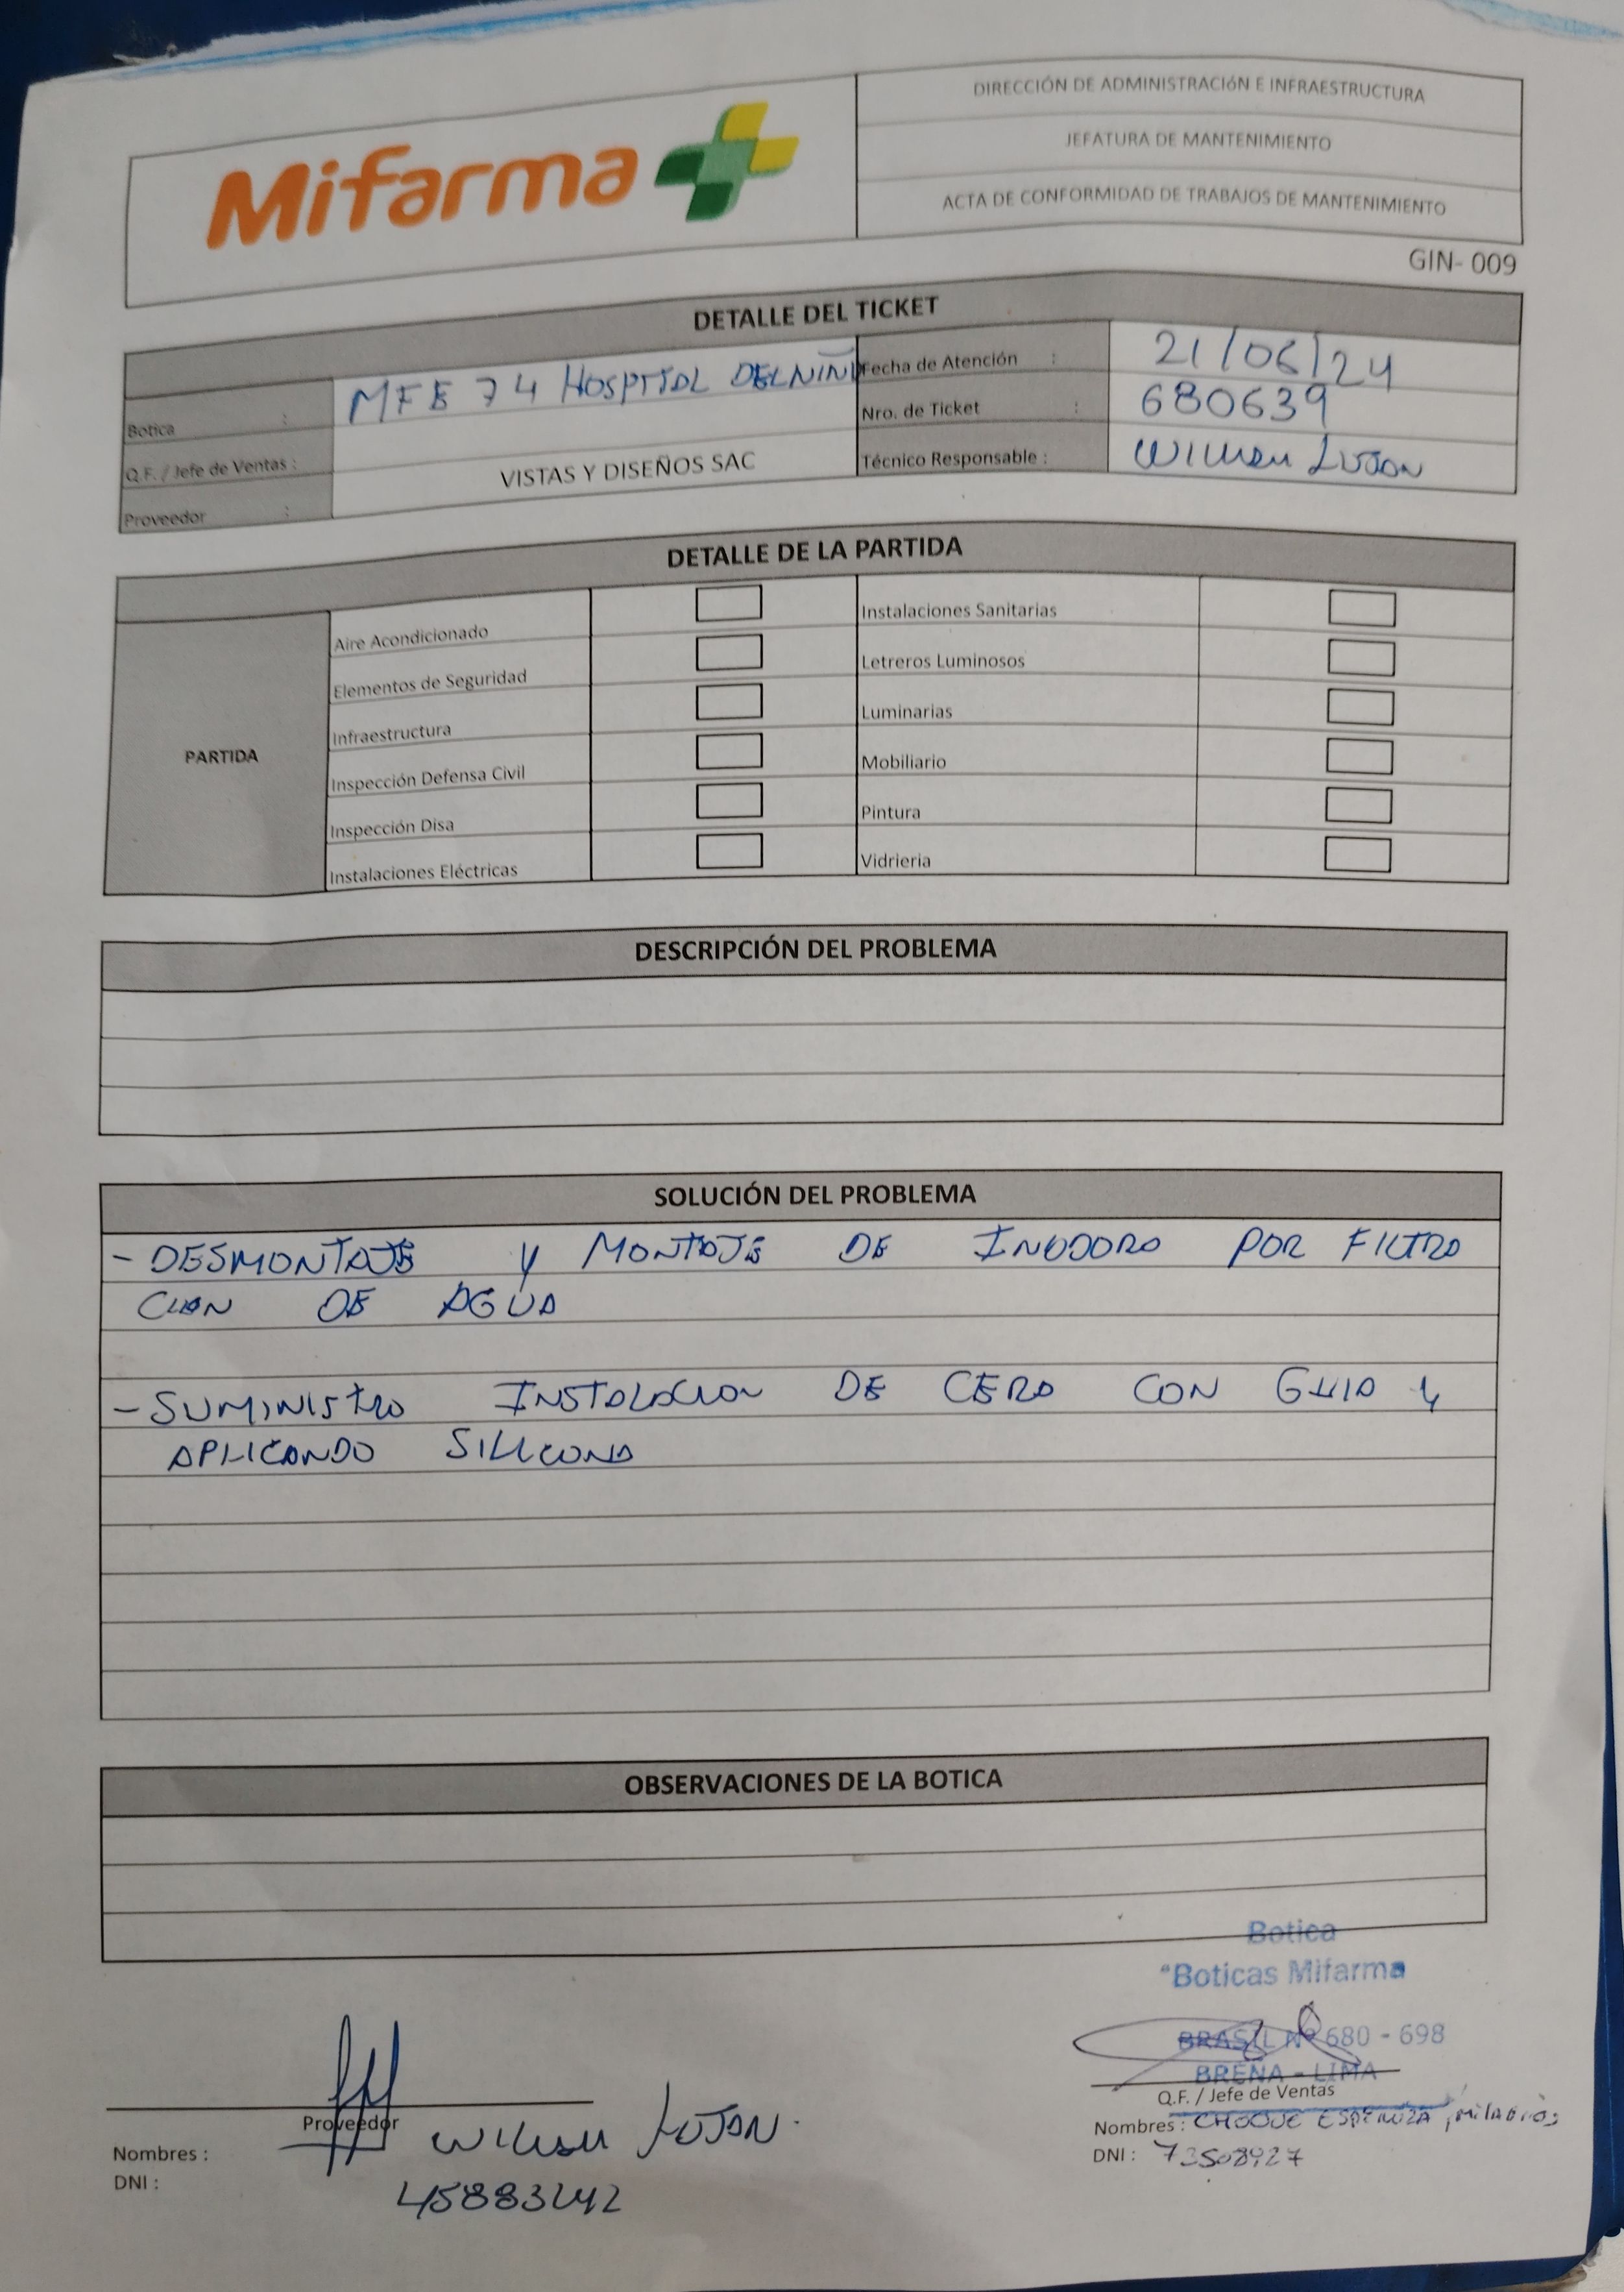 Mifarma
DIRECCIÓN DE ADMINISTRACIÓN E INFRAESTRUCTURA
JEFATURA DE MANTENIMIENTO
ACTA DE CONFORMIDAD DE TRABAJOS DE MANTENIMIENTO
GIN- 009
DETALLE DEL TICKET
Botica : MFE 74 HOSPITAL DEL NIÑ
Fecha de Atención : 21/06/24
Q.F. / Jefe de Ventas :
Nro. de Ticket : 680639
Proveedor : VISTAS Y DISEÑOS SAC
Técnico Responsable : LUJAN
DETALLE DE LA PARTIDA
PARTIDA
Aire Acondicionado
Instalaciones Sanitarias
Elementos de Seguridad
Letreros Luminosos
Infraestructura
Luminarias
Inspección Defensa Civil
Mobiliario
Inspección Disa
Pintura
Instalaciones Eléctricas
Vidrieria
DESCRIPCIÓN DEL PROBLEMA
SOLUCIÓN DEL PROBLEMA
- DESMONTAJE Y MONTAJE DE INODORO POR FILTRA
CION DE AGUA
- SUMINISTRO INSTALACION DE CERA CON GUIA Y
APLICANDO SILICONA
OBSERVACIONES DE LA BOTICA
Botica
"Boticas Mifarma
BRASIL Nº 680 - 698
BREÑA - LIMA
Proveedor
Q.F. / Jefe de Ventas
Nombres : LUJAN.
DNI :
Nombres : CHOQUE ESPINOZA, MILAGROS
DNI :